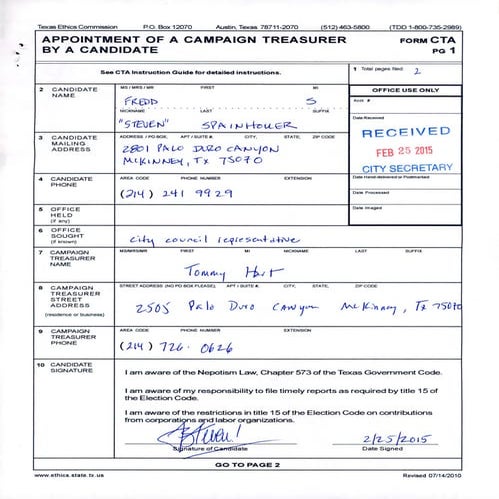 Texas Ethics Commission P.O. Box 12070 Austin, Texas 78711-2070 (512) 463-5800 (TDD 1-800-735-2989)
APPOINTMENT OF A CAMPAIGN TREASURER BY A CANDIDATE
FORM CTA
PG 1
See CTA Instruction Guide for detailed instructions.
1 Total pages filed: 2
2 CANDIDATE NAME
MS / MRS / MR FIRST MI
FREDD S
NICKNAME LAST SUFFIX
"STEVEN" SPAINHOUER
OFFICE USE ONLY
Acct. #
Date Received
RECEIVED
FEB 25 2015
CITY SECRETARY
Date Hand-delivered or Postmarked
Date Processed
Date Imaged
3 CANDIDATE MAILING ADDRESS
ADDRESS / PO BOX; APT / SUITE #; CITY; STATE; ZIP CODE
2801 PALO DURO CANYON
MCKINNEY, TX 75070
4 CANDIDATE PHONE
AREA CODE PHONE NUMBER EXTENSION
(214) 241 9929
5 OFFICE HELD
(if any)
6 OFFICE SOUGHT
(if known)
city council representative
7 CAMPAIGN TREASURER NAME
MS/MRS/MR FIRST MI NICKNAME LAST SUFFIX
Tommy Hart
8 CAMPAIGN TREASURER STREET ADDRESS
(residence or business)
STREET ADDRESS (NO PO BOX PLEASE); APT / SUITE #; CITY; STATE; ZIP CODE
2505 Palo Duro Canyon McKinney, Tx 75070
9 CAMPAIGN TREASURER PHONE
AREA CODE PHONE NUMBER EXTENSION
(214) 726-0626
10 CANDIDATE SIGNATURE
I am aware of the Nepotism Law, Chapter 573 of the Texas Government Code.
I am aware of my responsibility to file timely reports as required by title 15 of
the Election Code.
I am aware of the restrictions in title 15 of the Election Code on contributions
from corporations and labor organizations.
2/25/2015
Signature of Candidate Date Signed
GO TO PAGE 2
www.ethics.state.tx.us Revised 07/14/2010